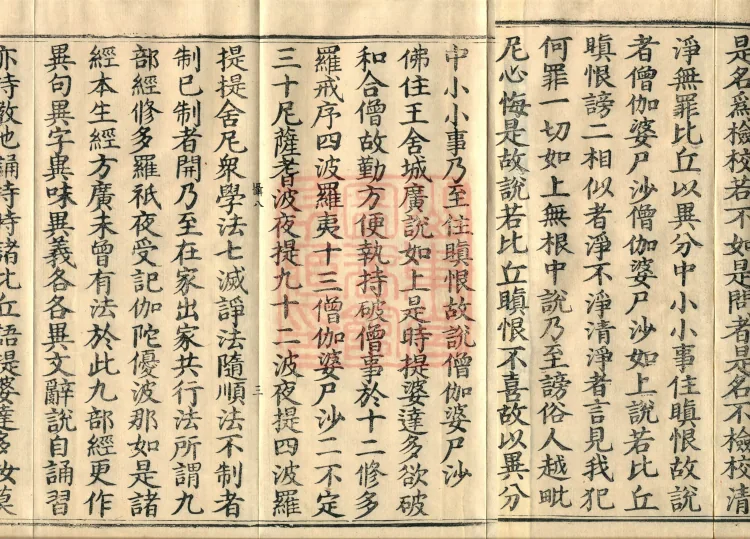 是名爲檢校若不如是問者是名不檢校清
淨無罪比丘以異分中小小事住瞋恨故說
者僧伽婆尸沙僧伽婆尸沙如上說若比丘
瞋恨謗二相似者淨不淨清淨者言見我犯
何罪一切如上無根中說乃至謗俗人越毗
尼心悔是故說若比丘瞋恨不喜故以異分
中小小事乃至住瞋恨故說僧伽婆尸沙
佛住王舍城廣說如上是時提婆達多欲破
和合僧故勤方便執持破僧事於十二修多
羅戒序四波羅夷十三僧伽婆尸沙二不定
三十尼薩耆波夜提九十二波夜提四波羅
八 三
提提舍尼衆學法七滅諍法隨順法不制者
制已制者開乃至在家出家共行法所謂九
部經修多羅祇夜受記伽陀優波那如是諸
經本生經方廣未曾有法於此九部經更作
異句異字異味異義各各異文辭說自誦習
亦持教他誦持時諸比丘語提婆達多汝莫